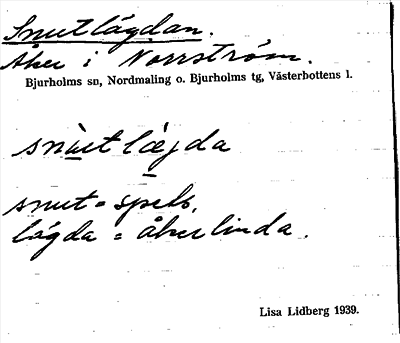 Snutlägdan.
Åker i Norrström.
Bjurholms sn, Nordmaling o. Bjurholms tg, Västerbottens l.
snùtlæjda
snut = spets,
lägda = åkerlinda.
Lisa Lidberg 1939.